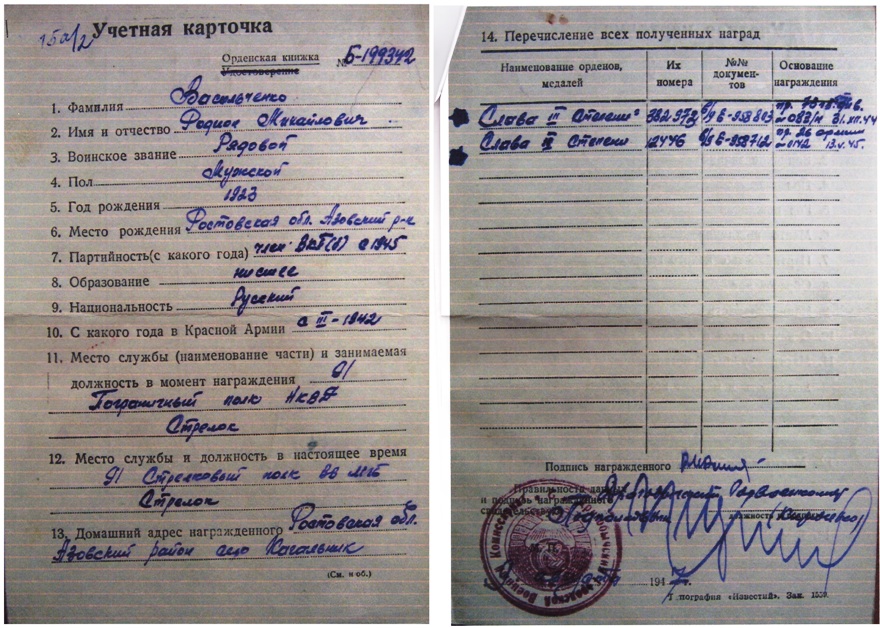 15а/2 Учетная карточка
Орденская книжка
Удостоверение
№ Б-199342
1. Фамилия Васильченко
2. Имя и отчество Родион Михайлович
3. Воинское звание Рядовой
4. Пол Мужской
5. Год рождения 1923
6. Место рождения Ростовская обл. Азовский р-н
7. Партийность(с какого года) член ВКП(б) с 1945
8. Образование низшее
9. Национальность Русский
10. С какого года в Красной Армии с III-1942
11. Место службы (наименование части) и занимаемая
должность в момент награждения 91
Пограничный полк НКВД
Стрелок
12. Место службы и должность в настоящее время
91 Стрелковый полк ВВ МГБ
Стрелок
13. Домашний адрес награжденного Ростовская обл.
Азовский район село Кагальник
(См. н об.)
14. Перечисление всех полученных наград
Наименование орденов, медалей
Их номера
№№ докумен-тов
Основание награждения
Слава III Степени 382973
31.XII.44
Слава II Степени 12446
пр. 26 армии
№ 0142 13.V.45.
Подпись награжденного
Правильность данных
и подпись награжденного
должность и
194 7 г.
Типография «Известий». Зак. 1559.